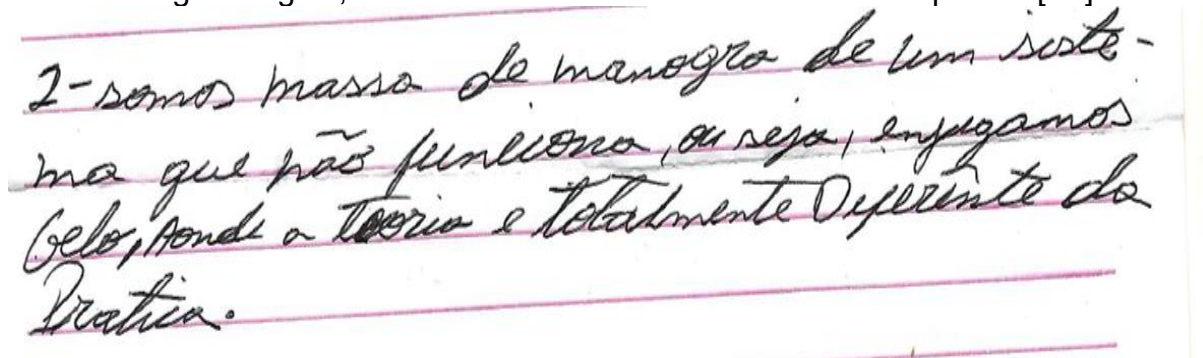 2-somos massa de manogra de um siste-
ma que não funciona, ou seja, enjugamos
Gelo, aonde a Teoria e totalmente Diferente da
Pratica.